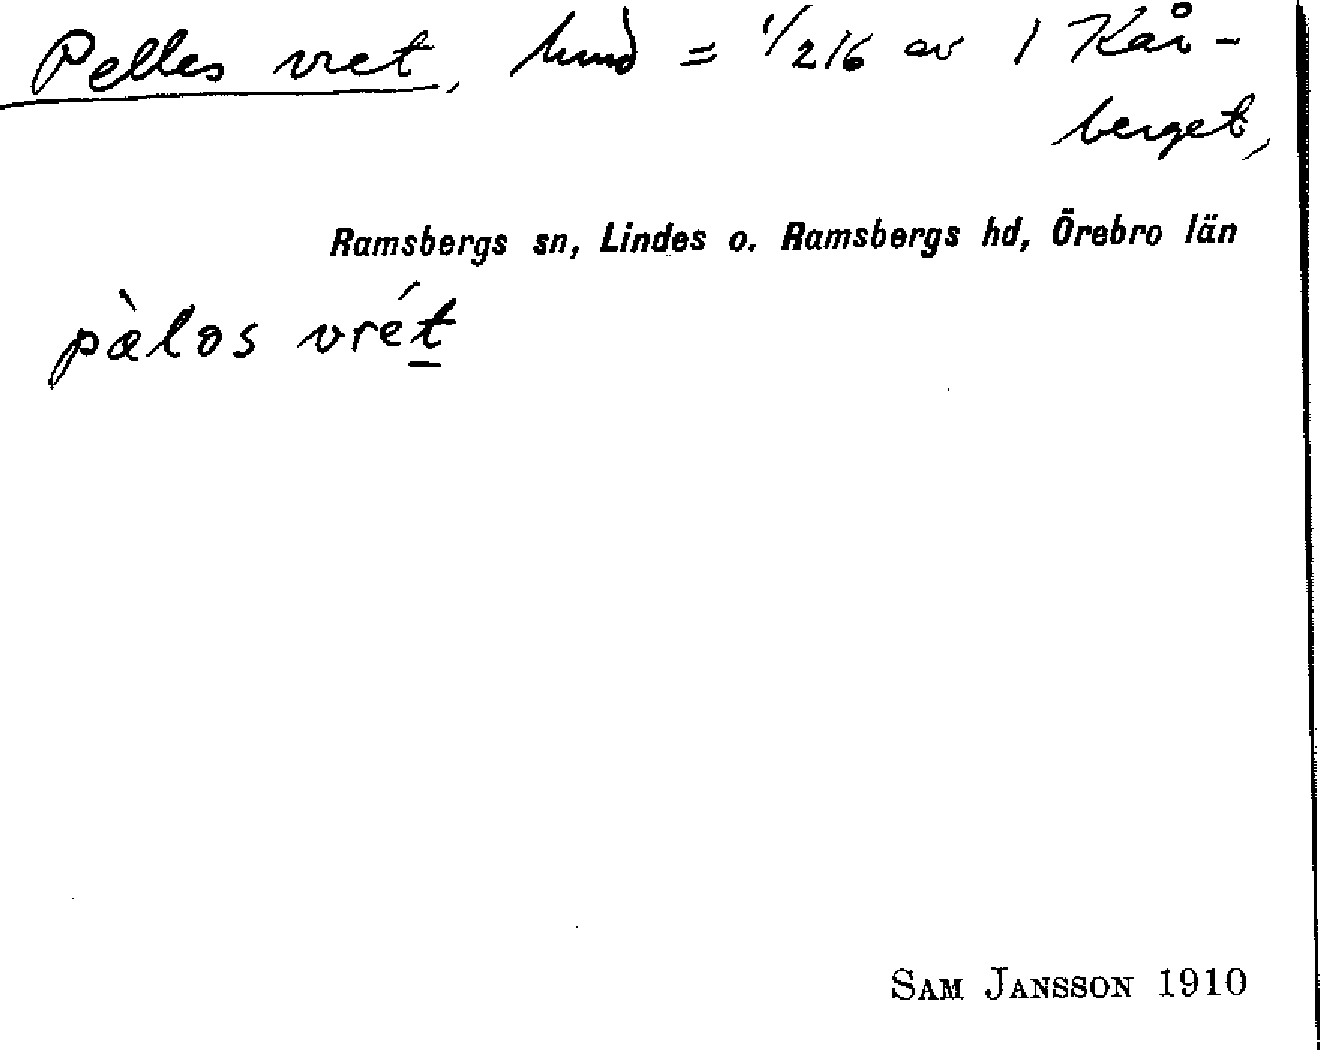 Pelles vret, hmd = 1/216 av 1 Kår-
berget,
Ramsbergs sn, Lindes o. Ramsbergs hd, Örebro län
pæ̀los vrét
SAM JANSSON 1910